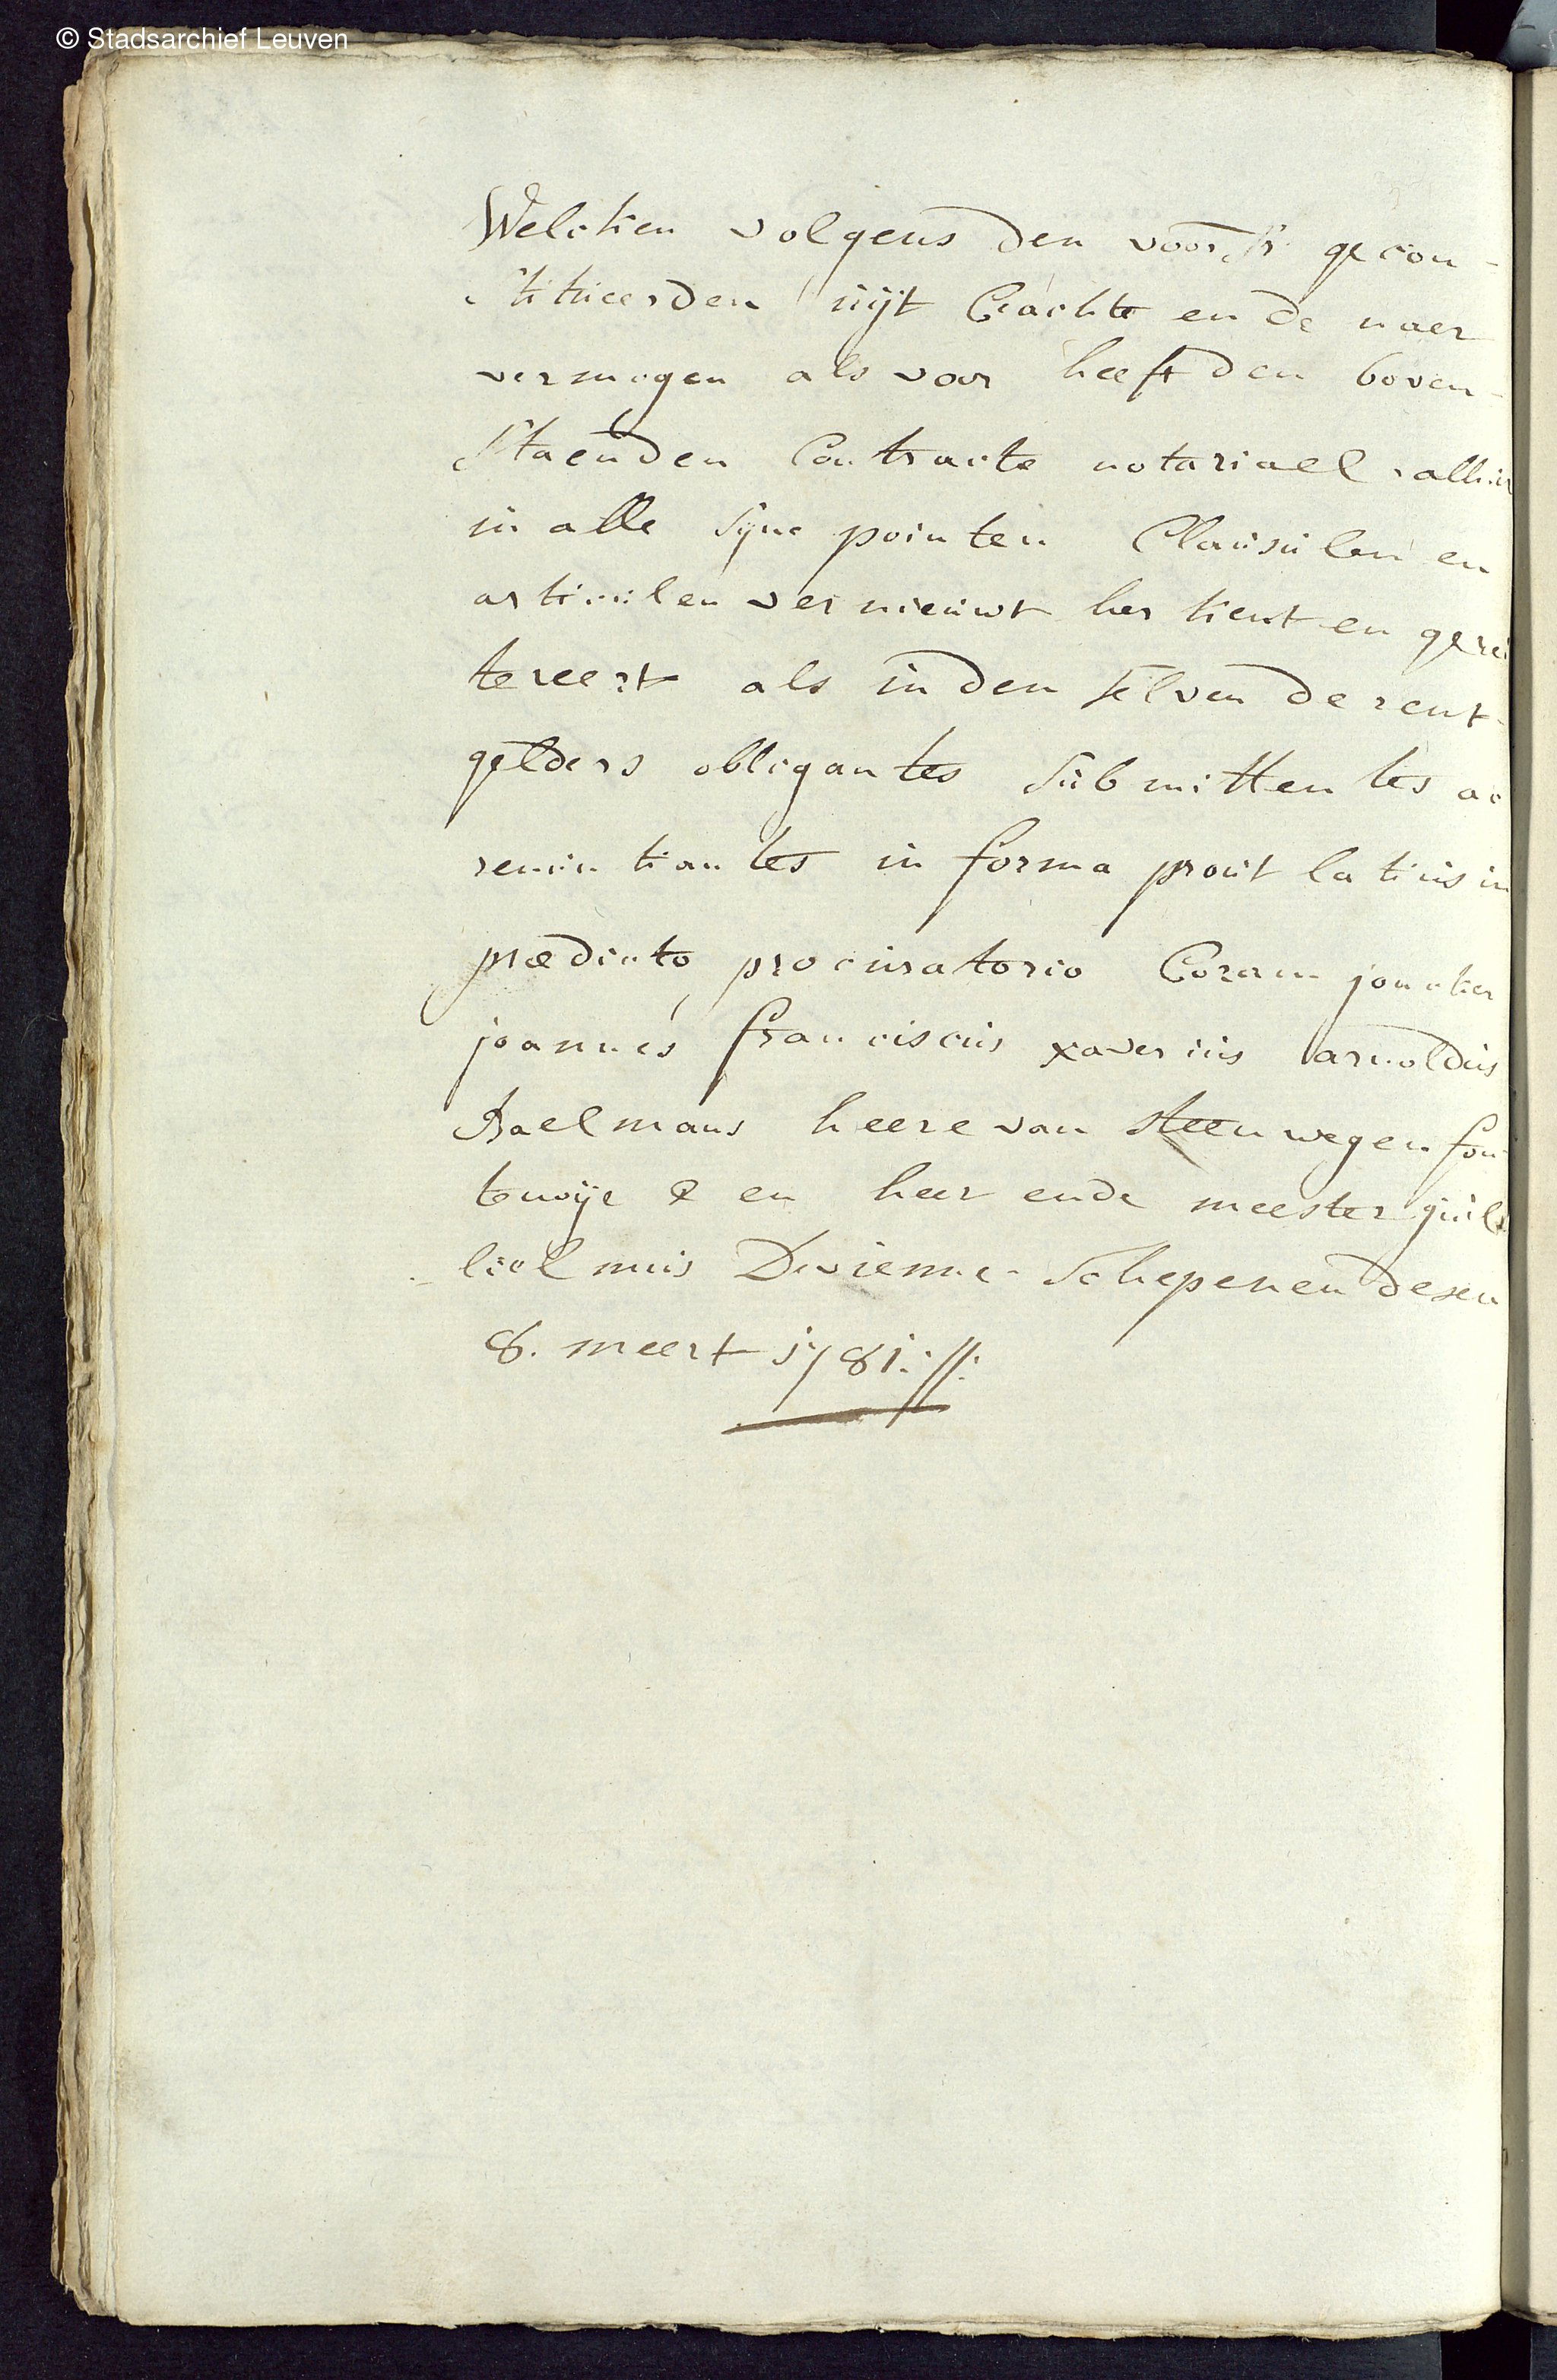 © Stadsarchief Leuven
Welcken volgens den voors. gecon-
stitueerden uijt Crachte ende naer
vermogen als voor heeft den boven-
Staenden Contracte notariael alhier
in alle syne pointen Clausulen en
articulen vernieuwt herkent en gerei
tereert als in den selven de rent-
gelders obligantes submittentes ac
renuntiantes in forma prout latius in
prædicto procuratorio Coram joncker
joannes franciscus xaverius arnoldus
Baelmans heere van steenwegen fon
tenoije & en heer ende meester guil
lielmus Devienne Schepenen desen
8. meert 1781://: